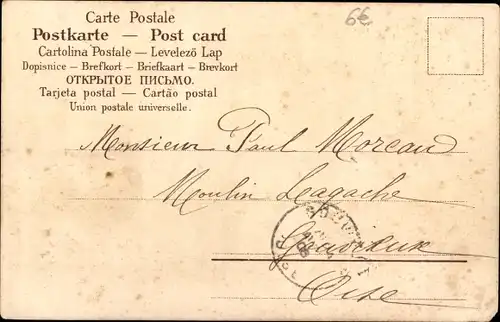 Carte Postale
6€
Postkarte — Post card
Cartolina Postale — Levelező Lap
Dopisnice — Brefkort — Briefkaart — Brevkort
ОТКРЫТОЕ ПИСЬМО.
Tarjeta postal — Cartão postal
Union postale universelle.
Monsieur Paul Moreau
Moulin Lagache
Gouvieux
Oise